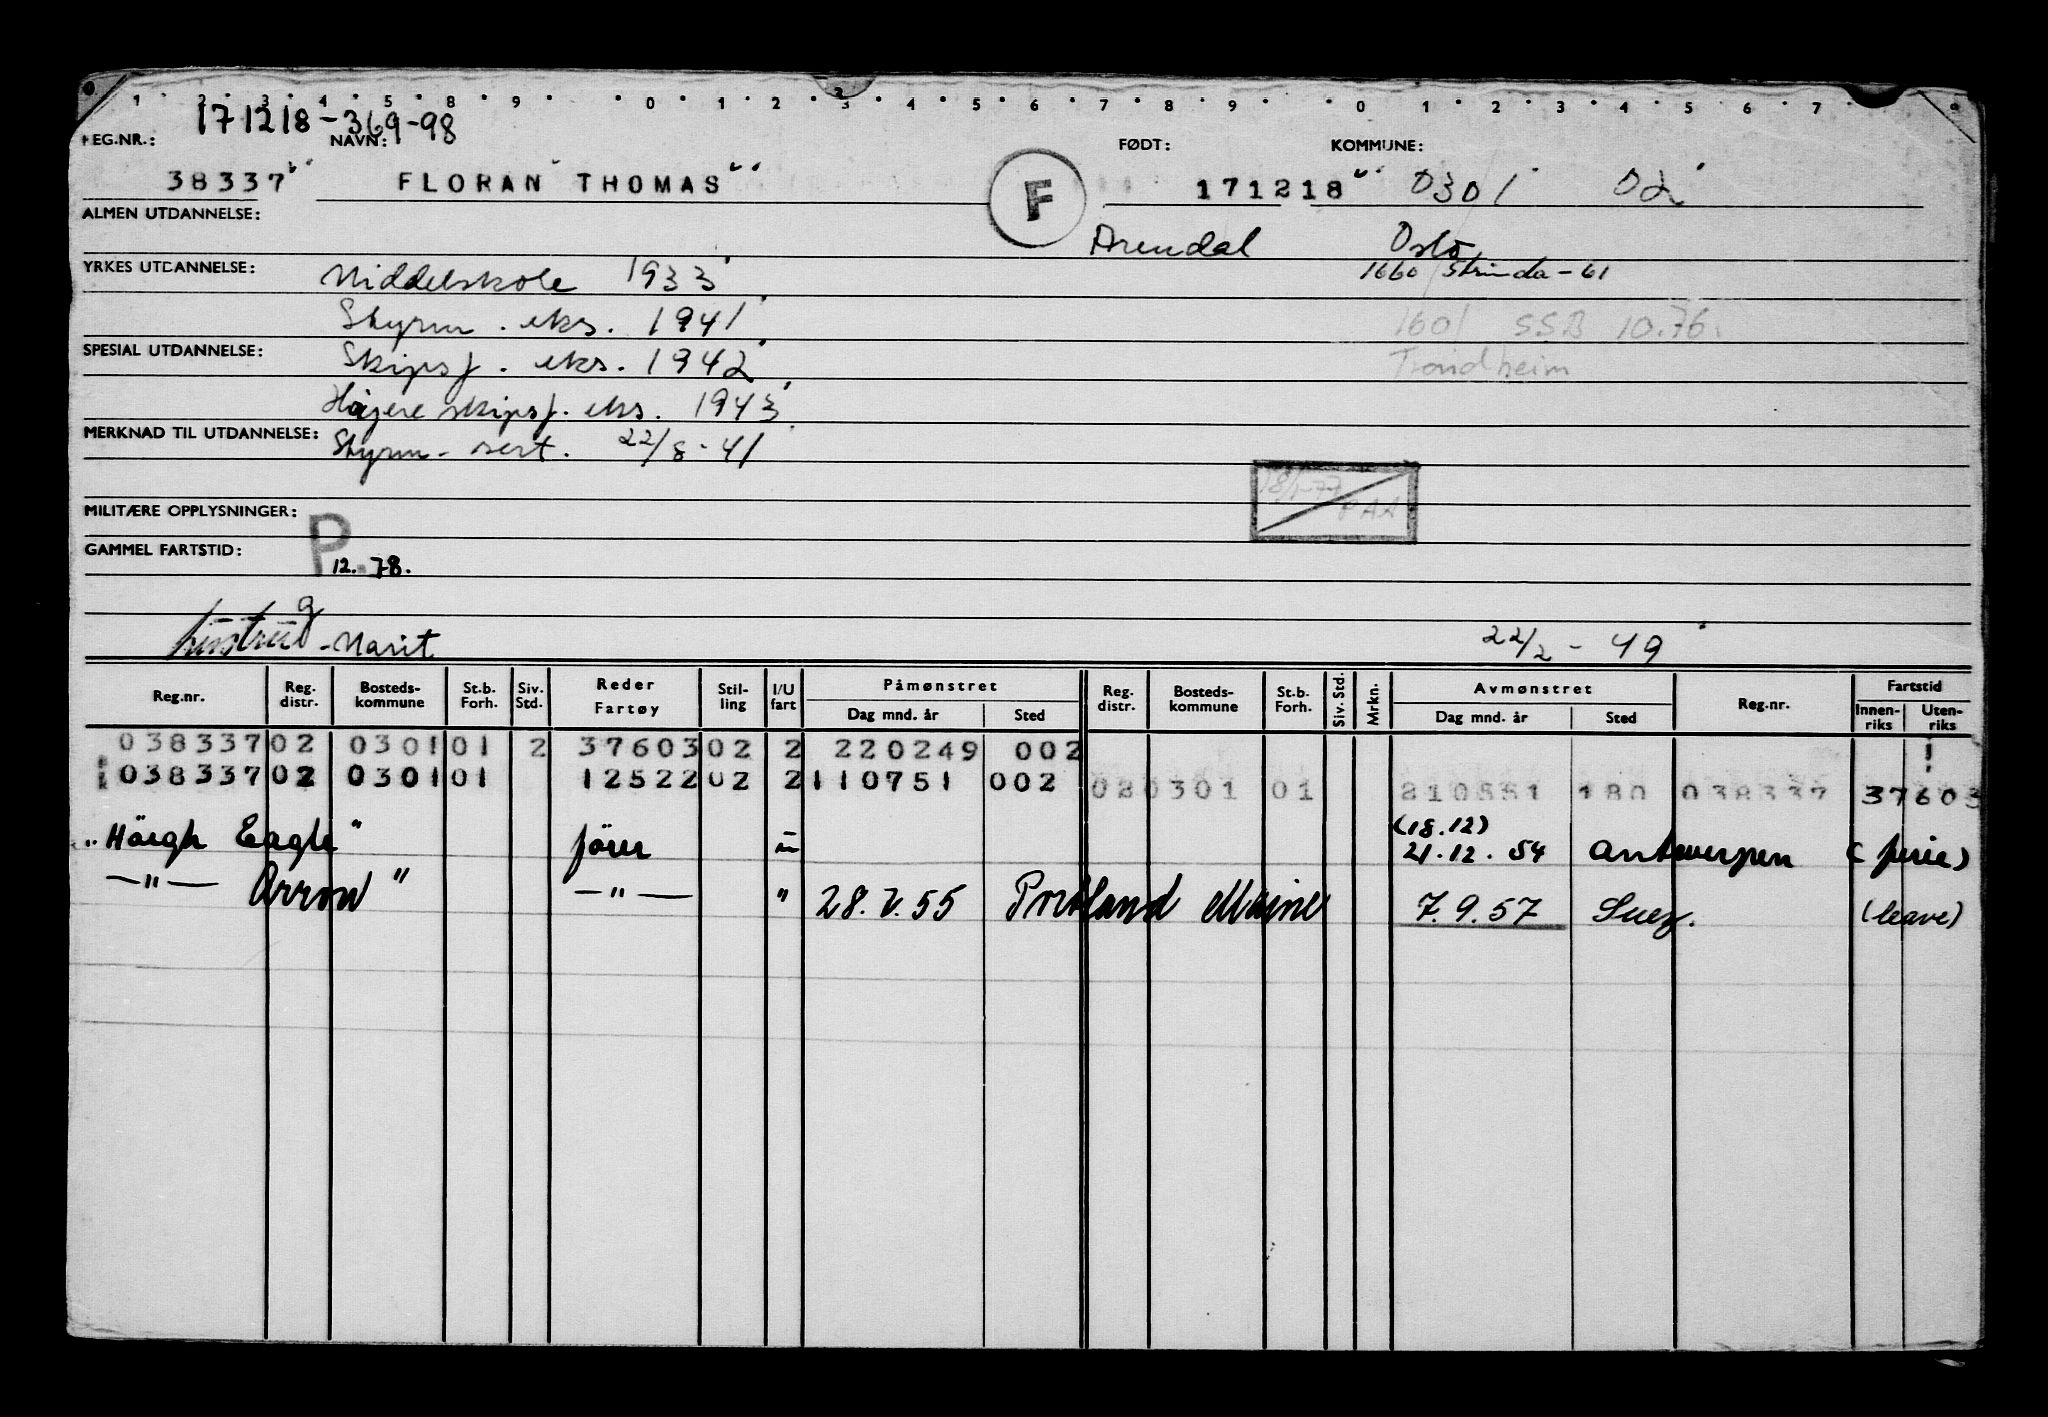 1 2 3 4 5 8 9 0 1 2 3 4 5 6 7 8 9 0 1 2 3 4 5 6 7
171218-369-98
REG.NR.: NAVN: FØDT: KOMMUNE:
38337 FLORAN THOMAS F 171218 0301 02
ALMEN UTDANNELSE: Arendal Oslo
YRKES UTDANNELSE: Middelskole 1933 1660 Strinda-61
Styrm. eks. 1941 1601 SSB 10.76.
SPESIAL UTDANNELSE: Skipsf. eks. 1942 Trondheim
Høyere skipsf. eks. 1943
MERKNAD TIL UTDANNELSE: Styrm. sert. 22/8-41
18/1-77 PAA
MILITÆRE OPPLYSNINGER:
P
GAMMEL FARTSTID: 12.78.
hustru - Marit 22/2-49
Reg.nr. Reg. distr. Bosteds- kommune St.b. Forh. Siv. Std. Reder Fartøy Stil- ling I/U fart Påmønstret Dag mnd. år Sted Reg. distr. Bosteds- kommune St.b. Forh. Siv. Std. Mrkn. Avmønstret Dag mnd. år Sted Reg.nr. Fartstid Innen- riks Uten- riks
038337 02 0301 01 2 37603 02 2 220249 002
038337 02 0301 01 12522 02 2 110751 002 02 0301 01 210551 180 038337 37603
(18.12)
"Höegh Eagle" fører u 21.12.54 Antwerpen (ferie)
—"— Arrow" —"— " 28.7.55 Portland Maine 7.9.57 Suez. (leave)